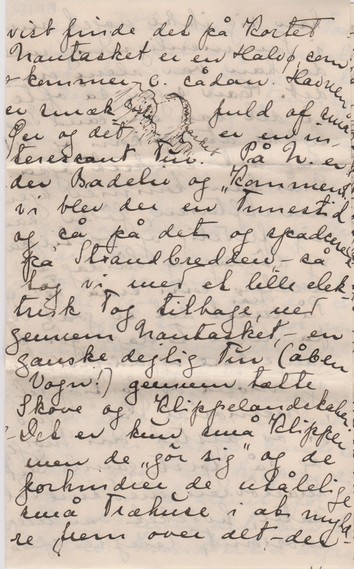 vist finde det på Kortet
Nantasket er en Halvø, som
kommer c. sådan. Havnen
er smæk fuld af små
Øer og det er en in-
teressant Tur. På N. er
der Badeliv og
vi blev der en Timestid
og så på det og spadserede
på Strandbredden - så
tog vi med et lille elek-
trisk Tog tilbage, ned
gennem Nantasket, - en
ganske dejlig Tur (åben
Vogn!) gennem tætte
Skove og Klippelandskaber
- Det er kun små Klipper
men de "gør sig" og de
forhindrer de utålelige
små Træhuse i at myld-
re frem over det - des-